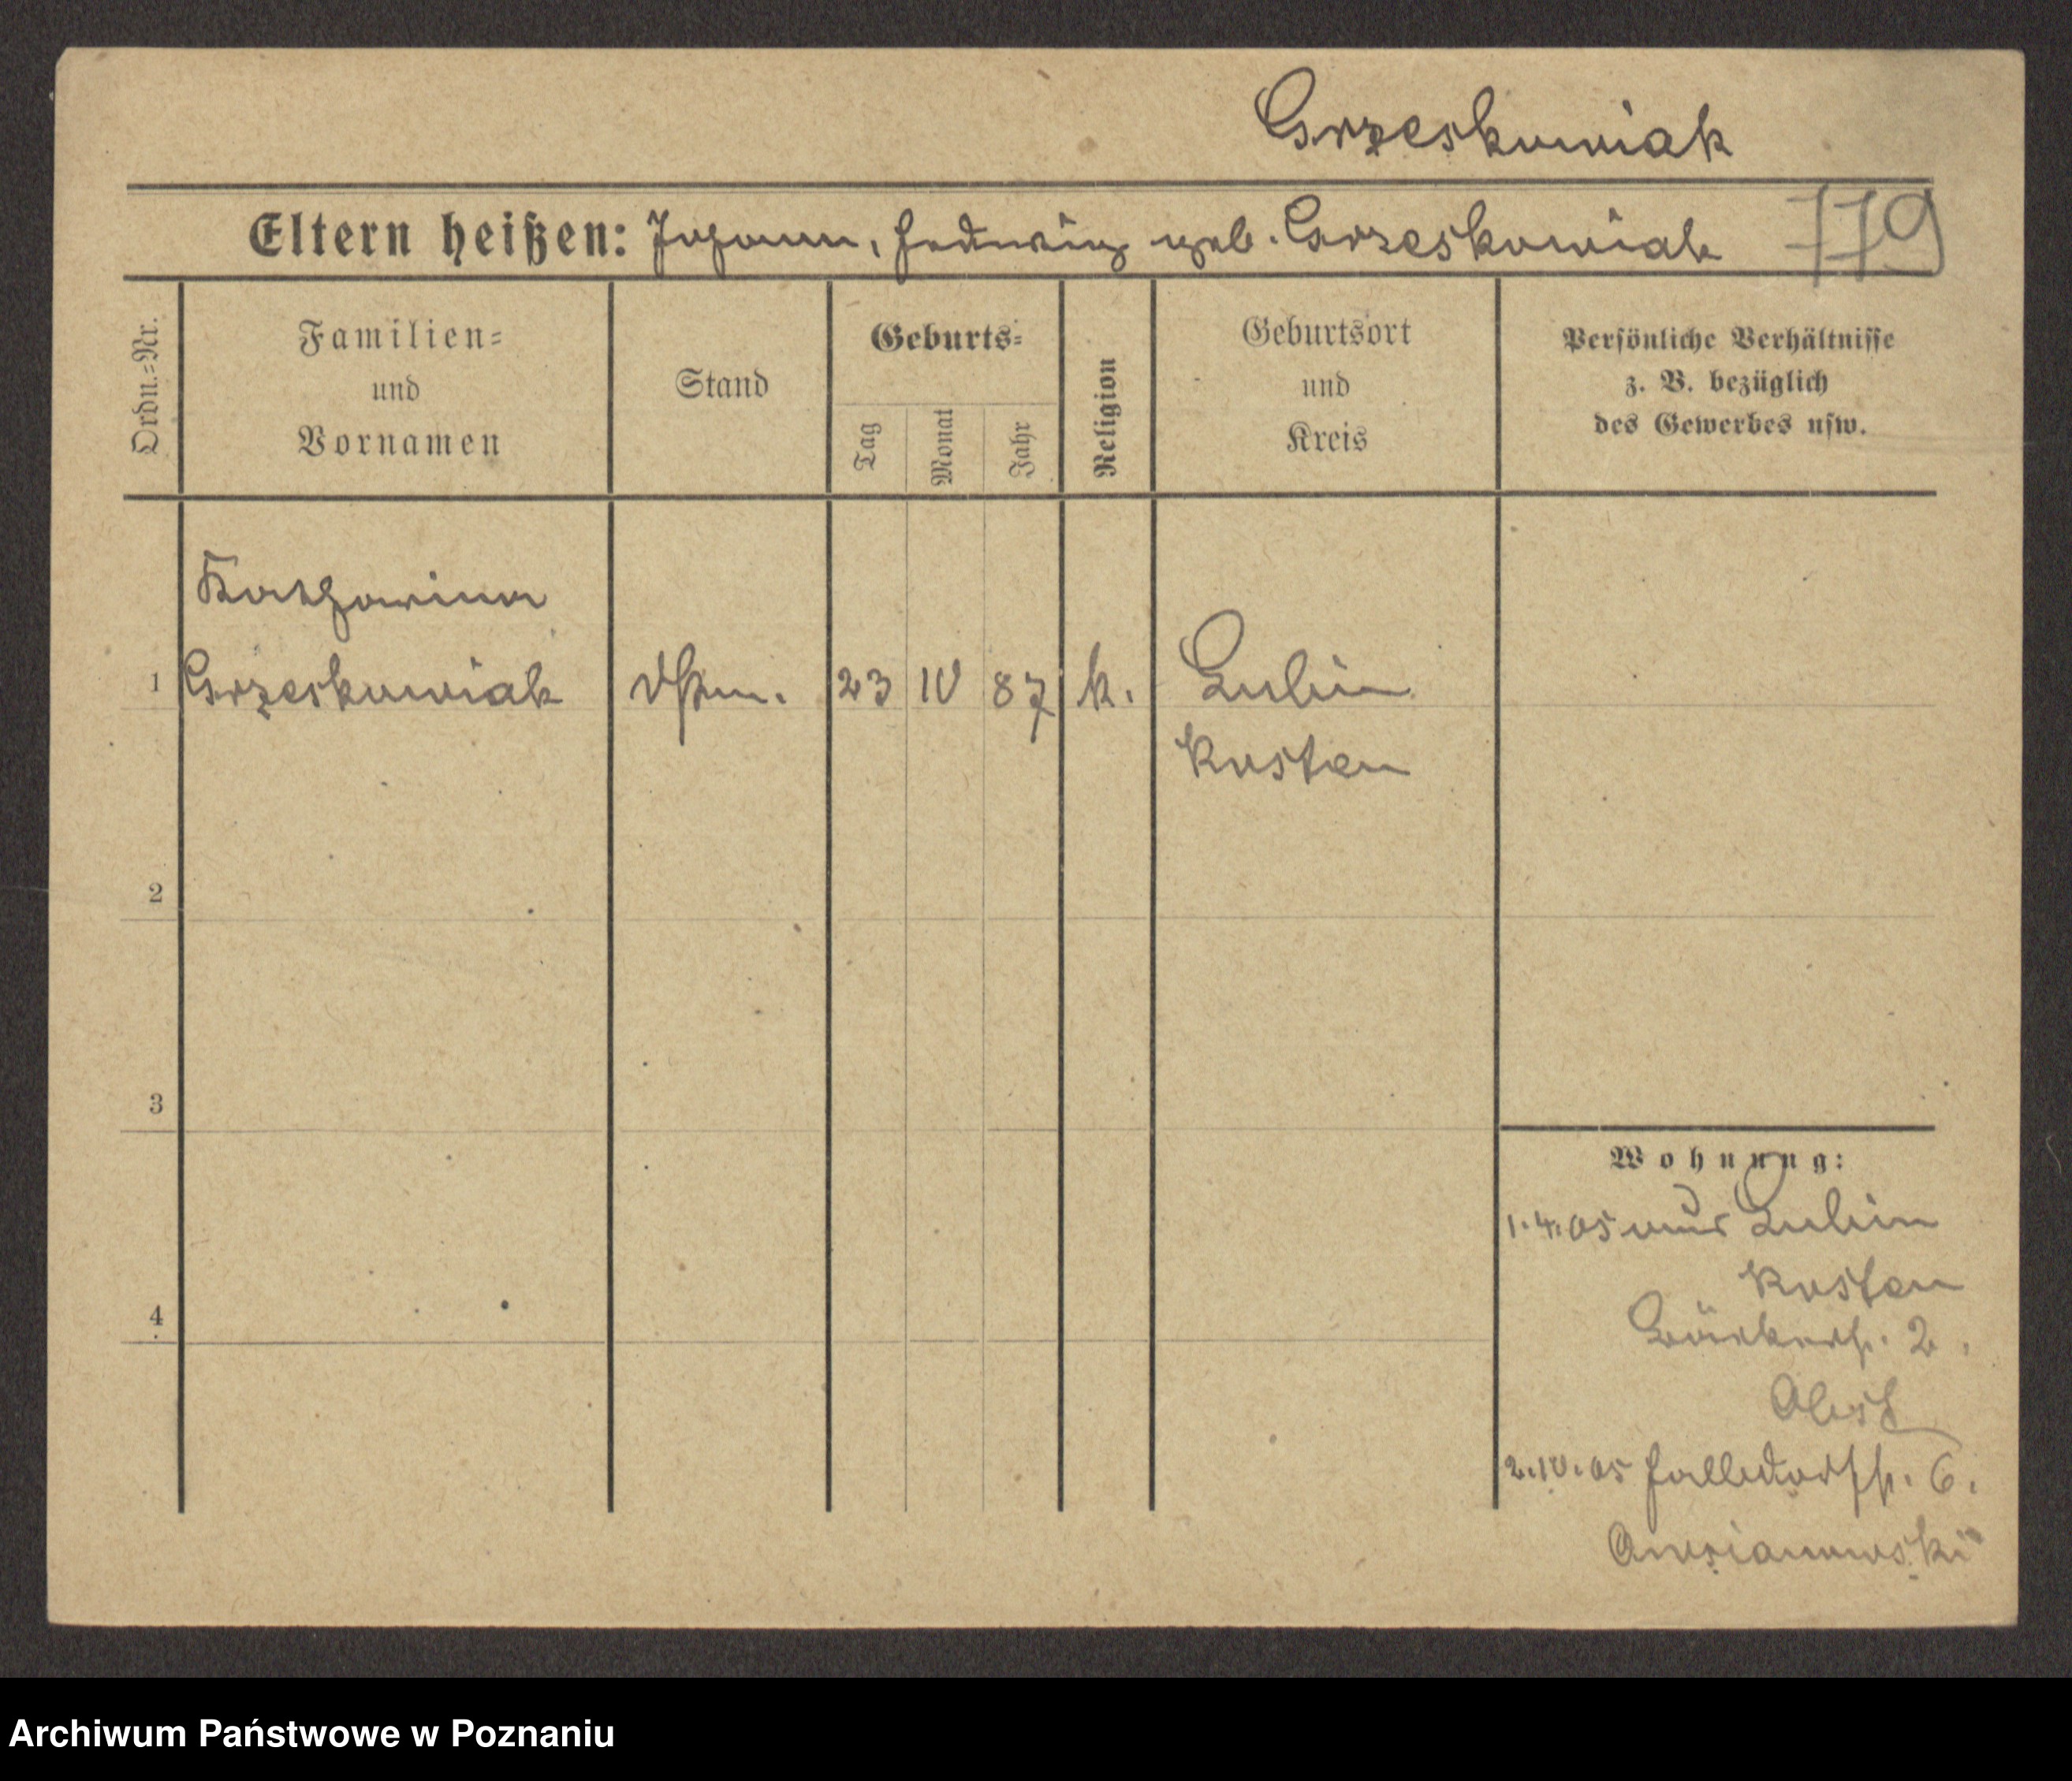 Grzeskowiak
Eltern heißen: Johann, Hedwig geb. Grzeskowiak 779
Ordn.-Nr.
Familien-
und
Vornamen
Stand
Geburts-
Tag
Monat
Jahr
Religion
Geburtsort
und
Kreis
Persönliche Verhältnisse
z. B. bezüglich
des Gewerbes usw.
Katharina
1 Grzeskowiak 23 IV 87 k. Lubin
Kosten
2
3
4
Wohnung:
1.4.05 aus Lubin
Kosten
Bäckerst. 2.
2.IV.05 Halbdorfst. 6.
Archiwum Państwowe w Poznaniu